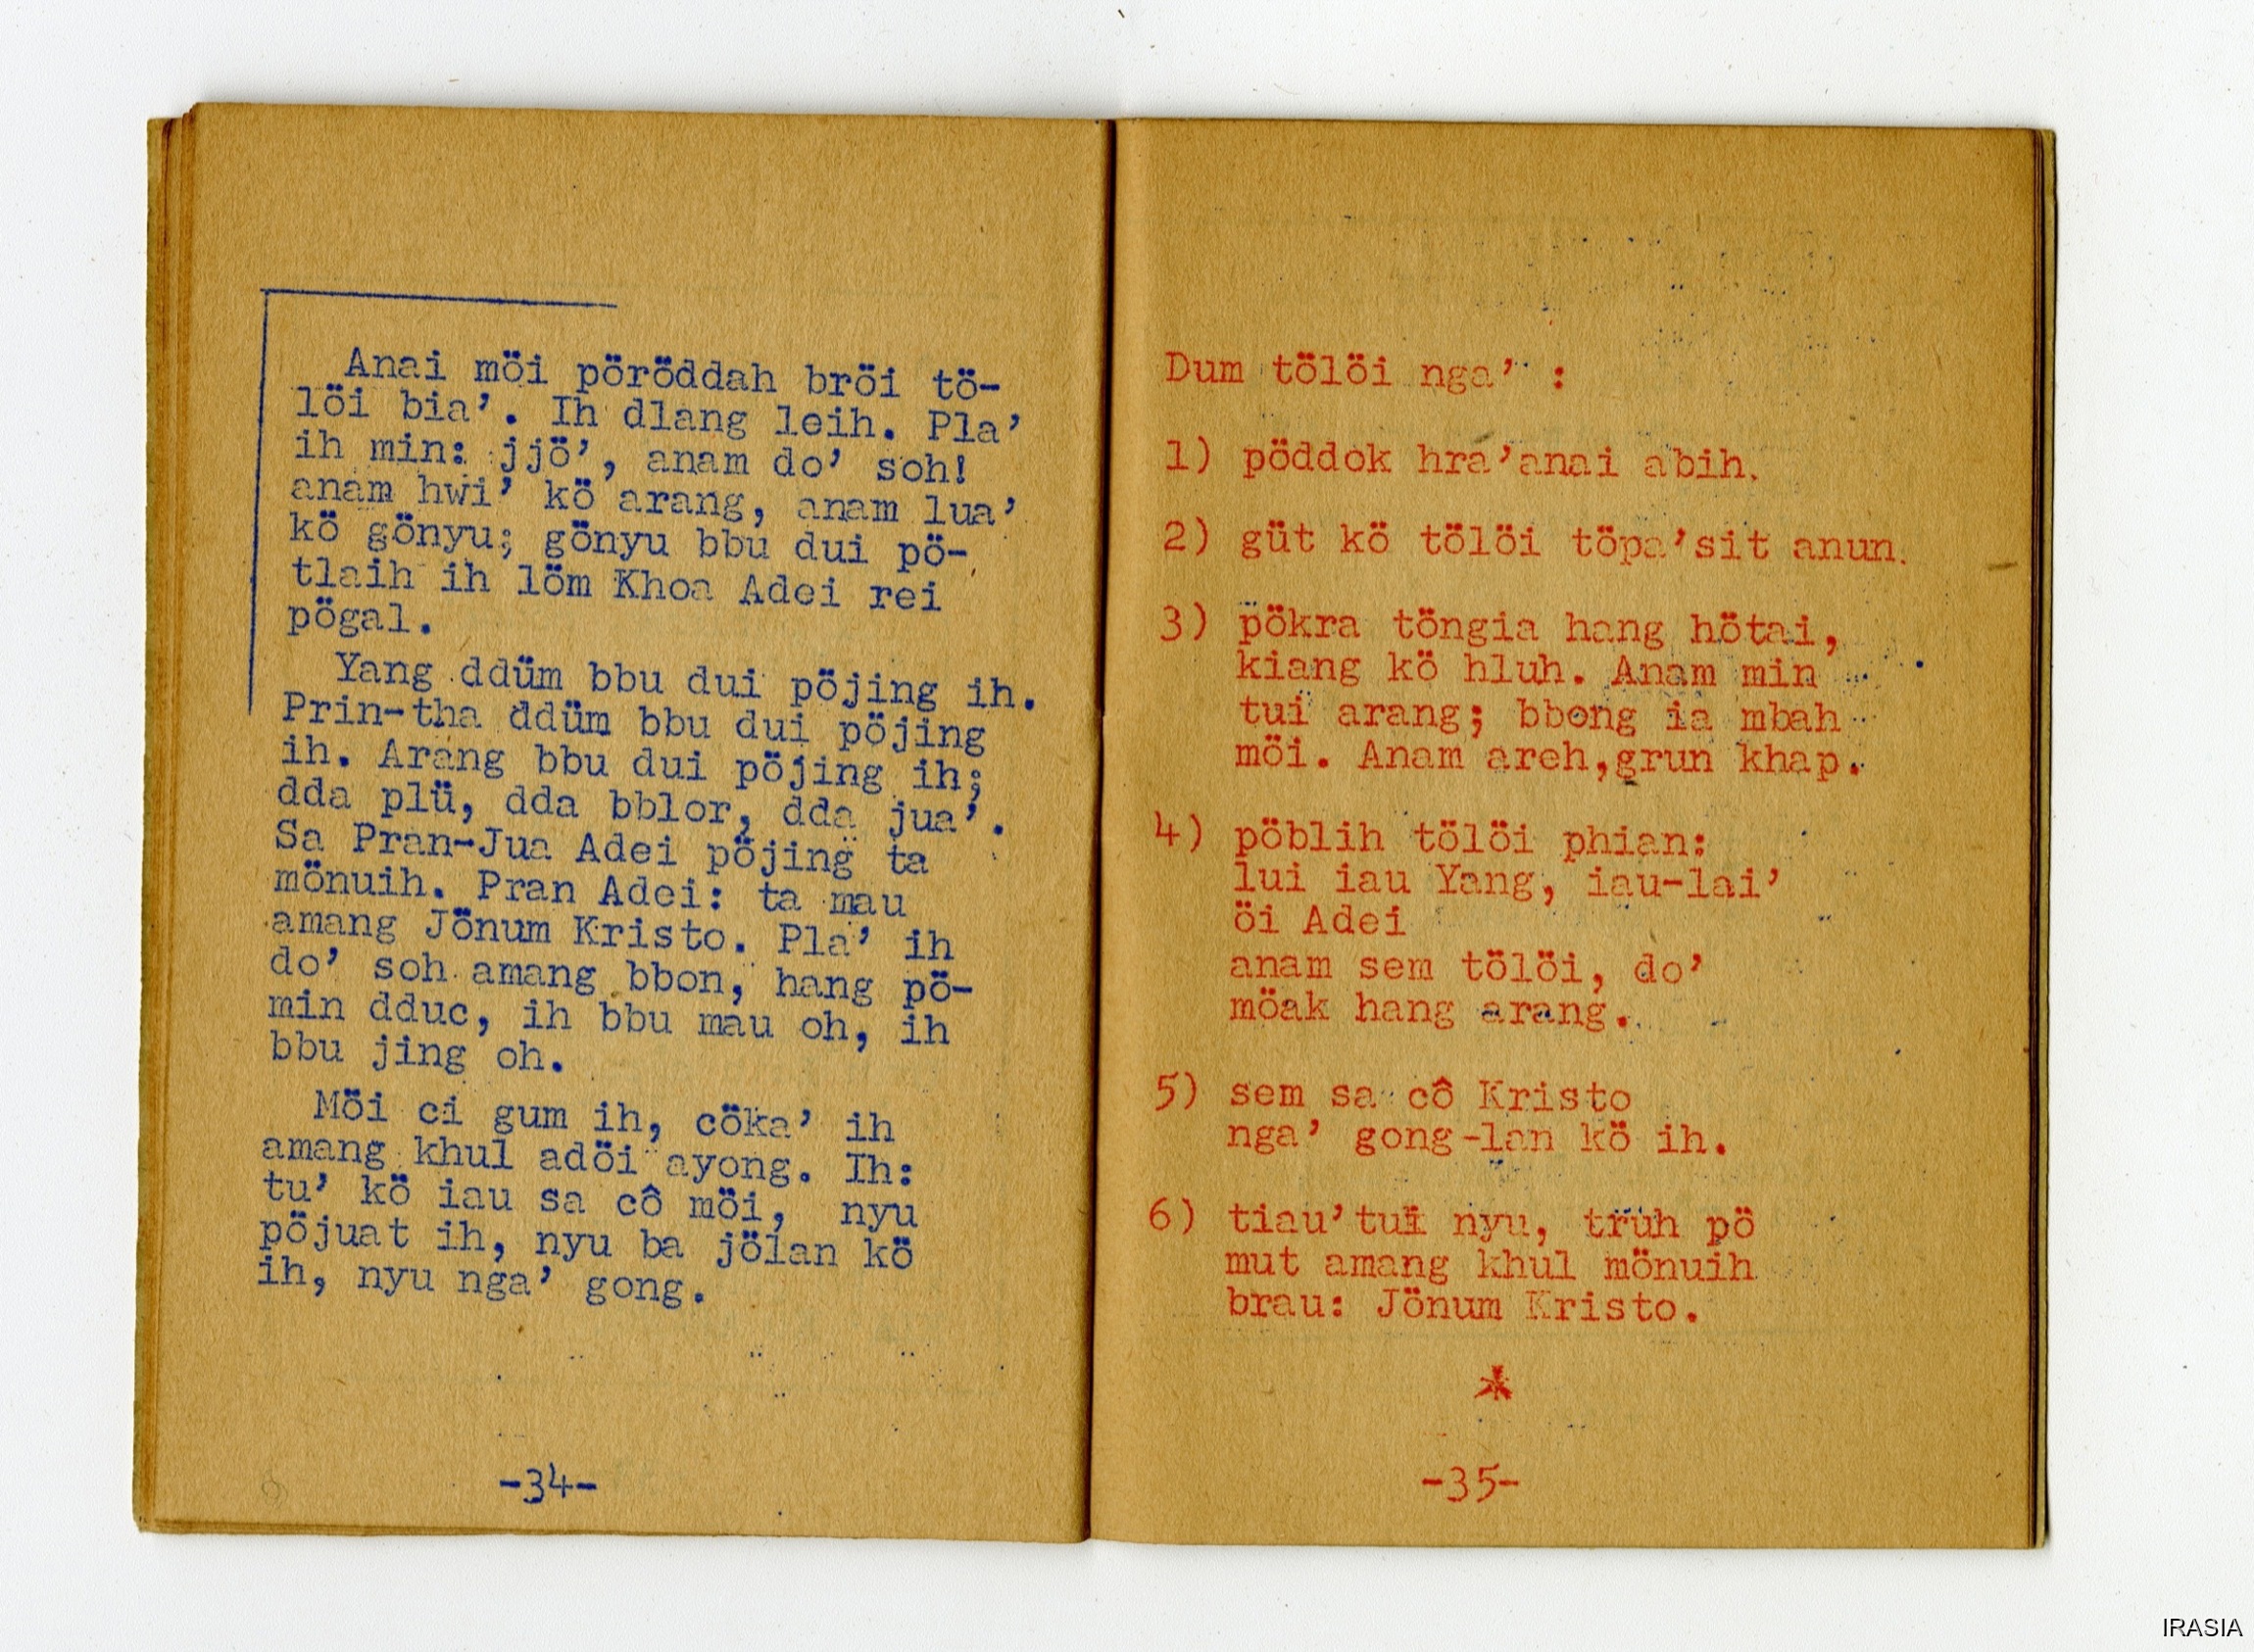 Anai möi pöröddah bröi tö-
löi bia’. Ih dlang leih. Pla’
ih min: jjö’, anam do’ soh!
anam hwi’ kö arang, anam lua’
kö gönyu; gönyu bbu dui pö-
tlaih ih löm Khoa Adei rei
pögal.
Yang ddüm bbu dui pöjing ih.
Prin-tha ddüm bbu dui pöjing
ih. Arang bbu dui pöjing ih;
dda plü, dda bblor, dda jua’.
Sa Pran-Jua Adei pöjing ta
mönuih. Pran Adei: ta mau
amang Jönum Kristo. Pla’ ih
do’ soh amang bbon, hang pö-
min dduc, ih bbu mau oh, ih
bbu jing oh.
Möi ci gum ih, cöka’ ih
amang khul adöi ayong. Ih:
tu’ kö iau sa cô möi, nyu
pöjuat ih, nyu ba jölan kö
ih, nyu nga’ gong.
-34-
Dum tölöi nga’ :
1) pöddok hra’anai abih.
2) güt kö tölöi töpa’sit anun.
3) pökra töngia hang hötai,
kiang kö hluh. Anam min
tui arang; bbong ia mbah
möi. Anam areh,grun khap.
4) pöblih tölöi phian:
lui iau Yang, iau-lai’
öi Adei
anam sem tölöi, do’
möak hang arang.
5) sem sa cô Kristo
nga’ gong-lan kö ih.
6) tiau’tui nyu, truh pö
mut amang khul mönuih
brau: Jönum Kristo.
*
-35-
IRASIA